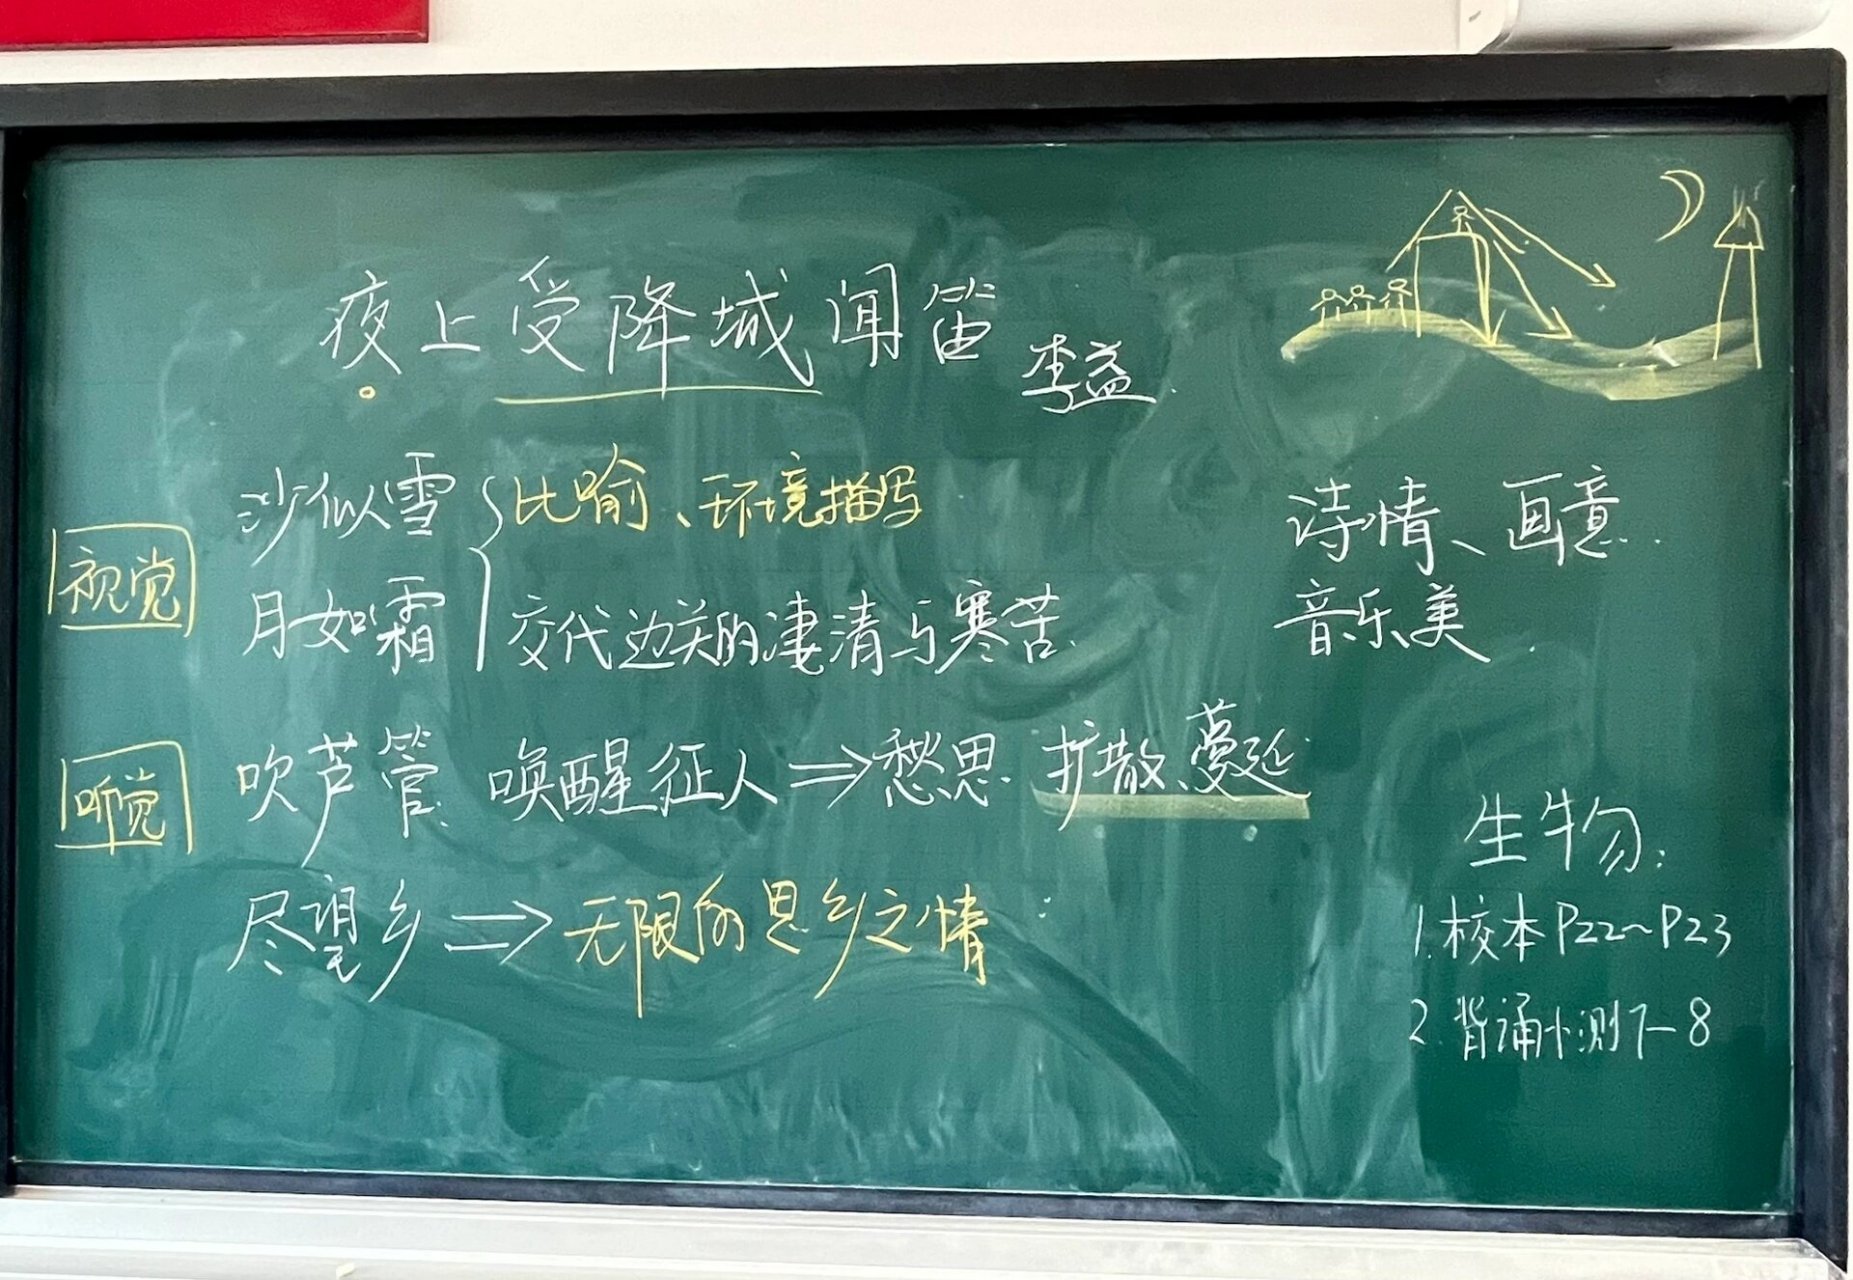 夜上受降城闻笛 李益
视觉
沙似雪 比喻、环境描写
月如霜 交代边关的凄清与寒苦
诗情、画意
音乐美
听觉
吹芦管 唤醒征人⇒愁思 扩散、蔓延
尽望乡⇒无限的思乡之情
生物:
1.校本P22~P23
2.背诵小测下-8